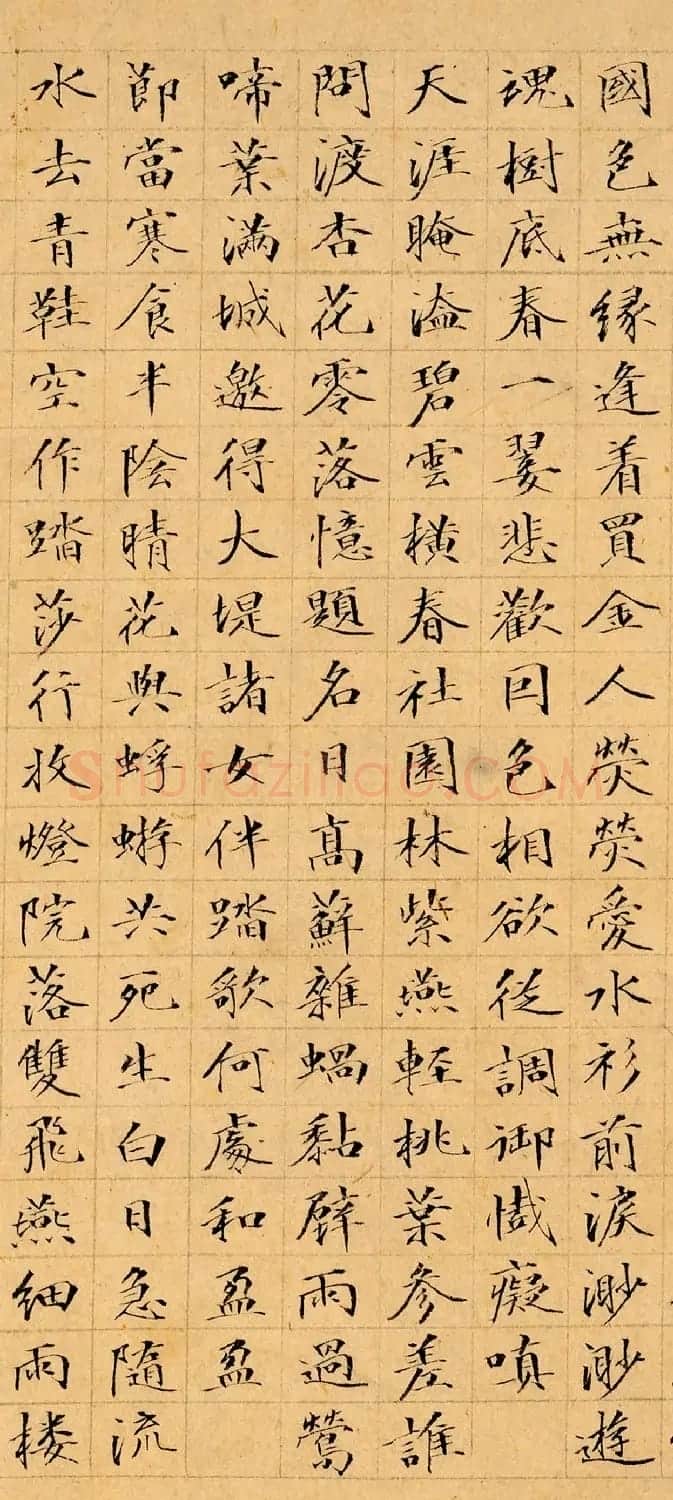 國色無緣逢着買金人熒熒愛水衫前淚渺渺遊
魂樹底春一夢悲歡回色相欲從調御懺癡嗔
天涯晻溘碧雲橫春社園林紫燕輕桃葉參差誰
問渡杏花零落憶題名日高蘚雜蝸黏壁雨過鶯
啼葉滿城邀得大堤諸女伴踏歌何處和盈盈
節當寒食半陰晴花與蜉蝣共死生白日急隨流
水去青鞋空作踏莎行收燈院落雙飛燕細雨楼
shufaziliao.COM